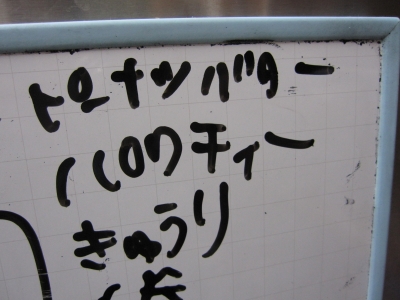 ピーナッツバター
ハロウティー
きゅうり